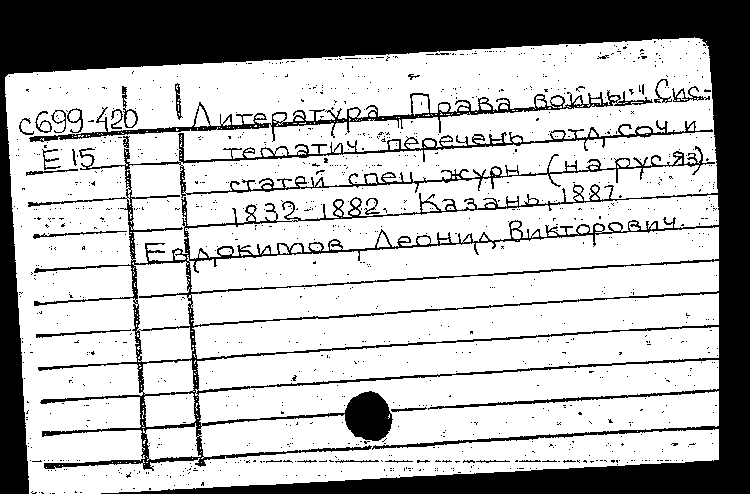 с699-420 Литература „Права войны". Сис-
Е 15 тематич. перечень отд. соч. и
статей спец. журн. (на рус. яз).
1832-1882. Казань, 1887.
Евдокимов, Леонид Викторович.